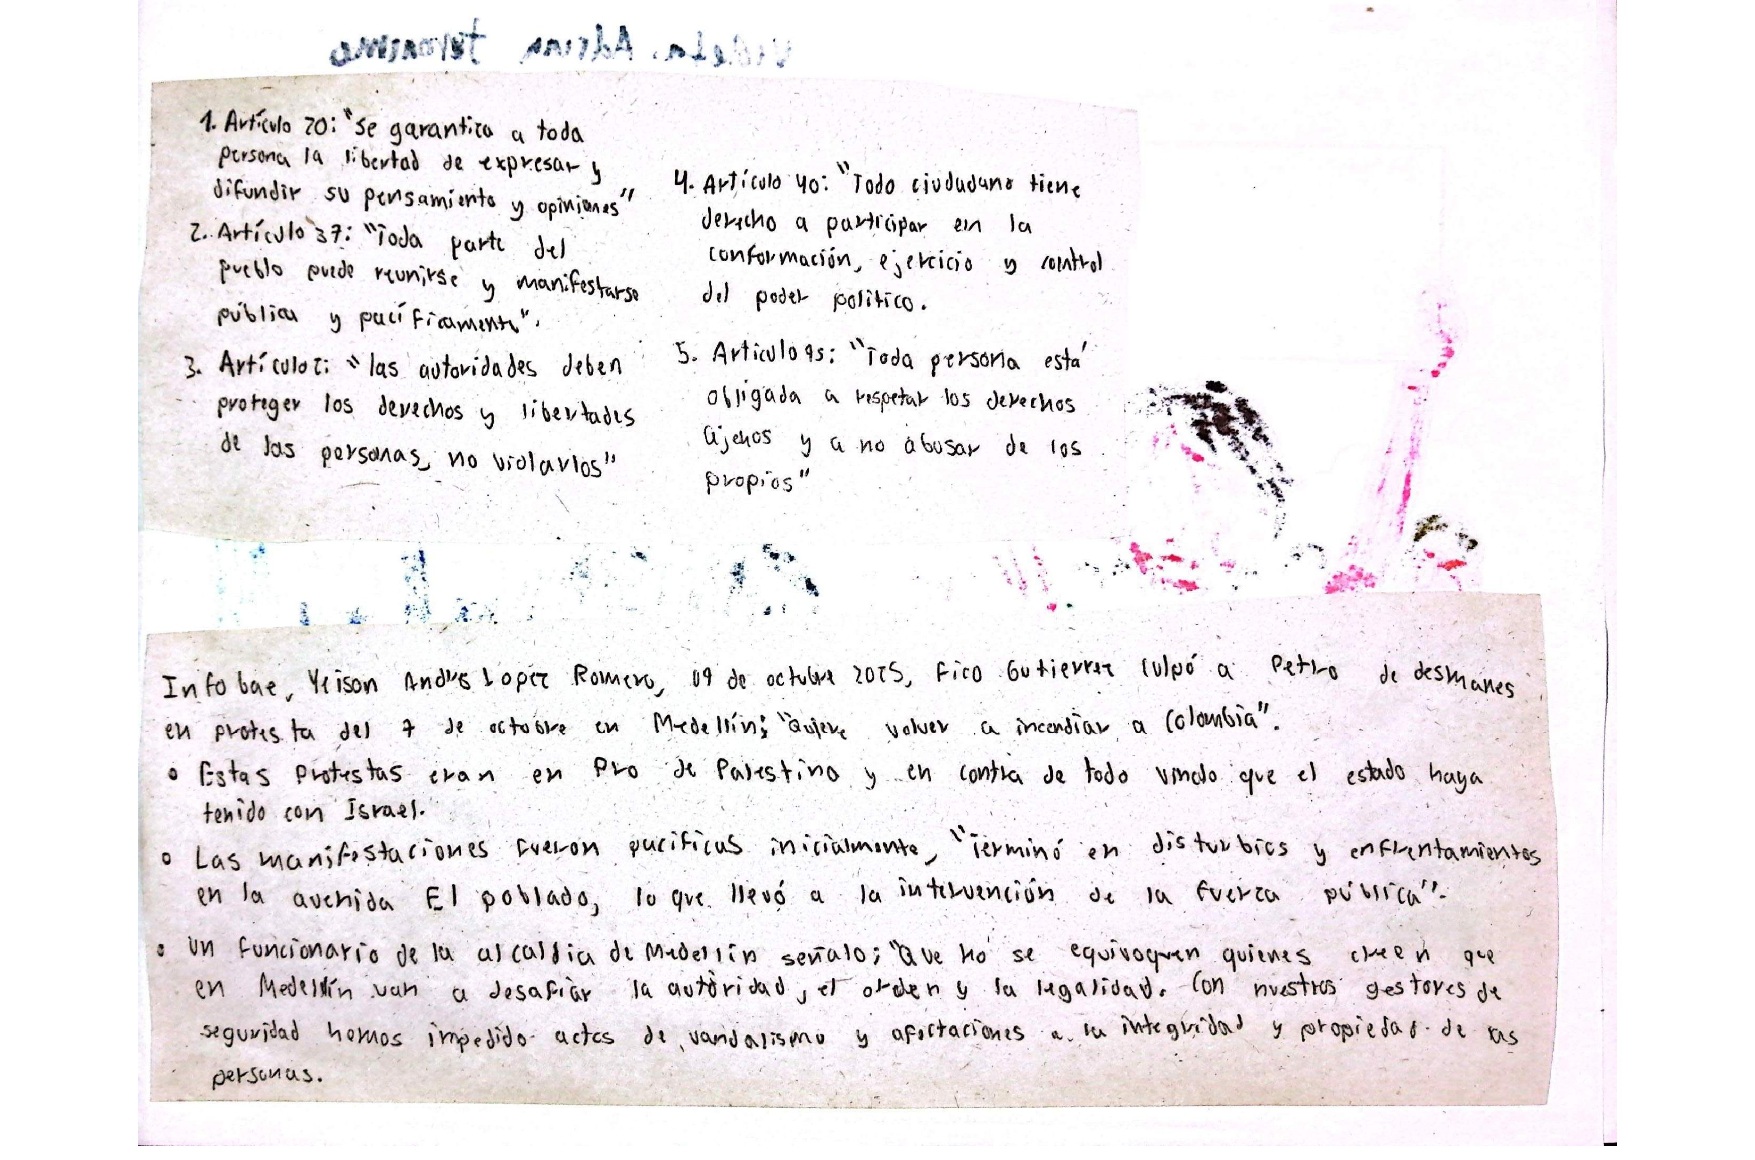 Violeta, Adrian, Jeronimo
1. Artículo 20: "Se garantiza a toda
persona la libertad de expresar y
difundir su pensamiento y opiniones"
2. Artículo 37: "Toda parte del
pueblo puede reunirse y manifestarse
pública y pacíficamente".
3. Artículo 2: "las autoridades deben
proteger los derechos y libertades
de las personas, no violarlos"
4. Artículo 40: "Todo ciudadano tiene
derecho a participar en la
conformación, ejercicio y control
del poder político.
5. Artículo 95: "Toda persona está
obligada a respetar los derechos
ajenos y a no abusar de los
propios"
Infobae, Yeison Andrés Lopez Romero, 09 de octubre 2025, Fico Gutierrez culpó a Petro de desmanes
en protesta del 7 de octubre en Medellín: "Quiere volver a incendiar a Colombia".
• Estas protestas eran en pro de Palestina y en contra de todo vinclo que el estado haya
tenido con Israel.
• Las manifestaciones fueron pacíficas inicialmente, "Terminó en disturbios y enfrentamientos
en la avenida El poblado, lo que llevó a la intervención de la fuerza pública".
• Un funcionario de la alcaldia de Medellín señalo; "Que no se equivoquen quienes creen que
en Medellín van a desafiar la autoridad, el orden y la legalidad. Con nuestros gestores de
seguridad hemos impedido actos de vandalismo y afectaciones a la integridad y propiedad de las
personas.